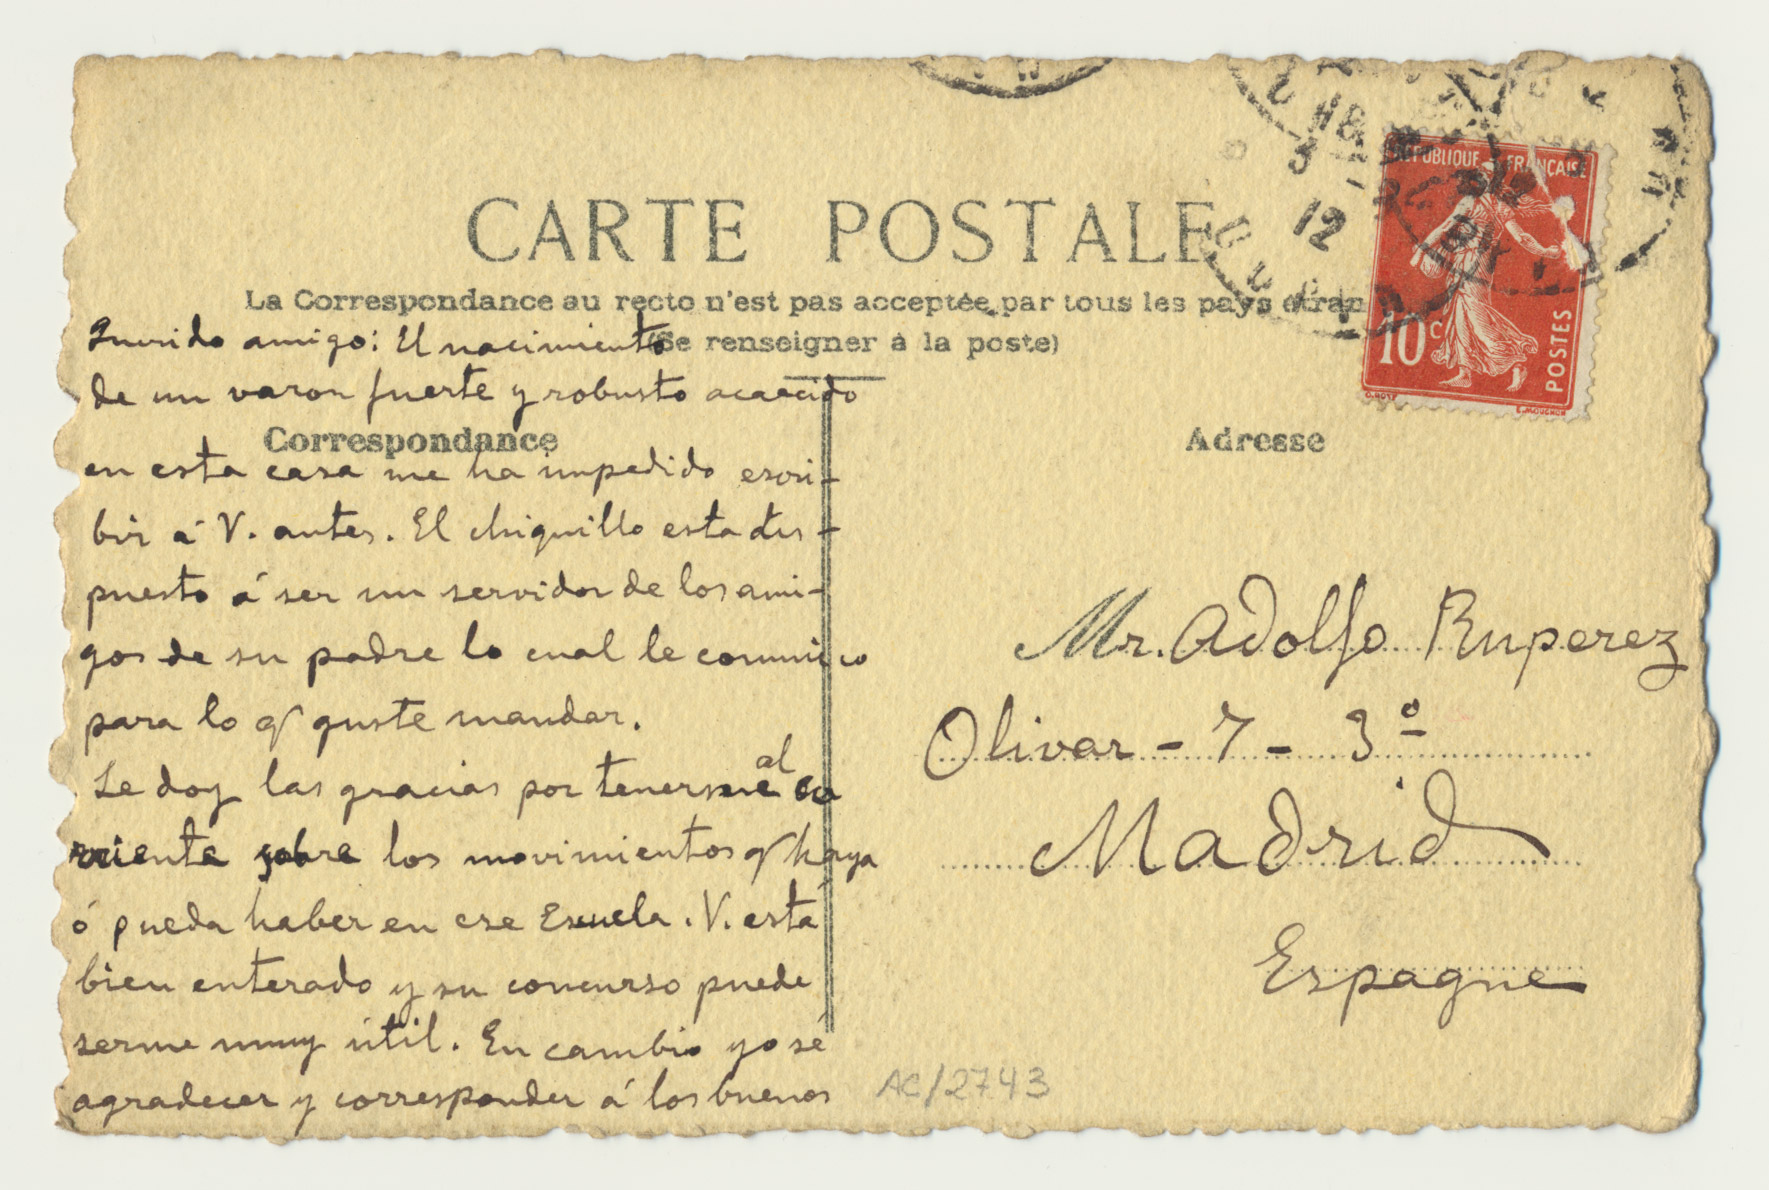 CARTE POSTALE
La Correspondance au recto n'est pas acceptée par tous les pays étran
(Se renseigner à la poste)
Correspondance
Querido amigo: El nacimiento
de un varon fuerte y robusto acaecido
en esta casa me ha impedido escri-
bir á V. antes. El chiquillo esta dis-
puesto á ser un servidor de los ami-
gos de su padre lo cual le comunico
para lo q guste mandar.
Le doy las gracias por tenerme al co
rriente sobre los movimientos q haya
ó pueda haber en ese Escuela. V. está
bien enterado y su concurso puede
serme muy útil. En cambio yo sé
agradecer y corresponder á los buenos
Adresse
Mr. Adolfo Ruperez
Olivar - 7 - 3º
Madrid
Espagne
AC/2743
REPUBLIQUE FRANÇAISE
10c
POSTES
3
12